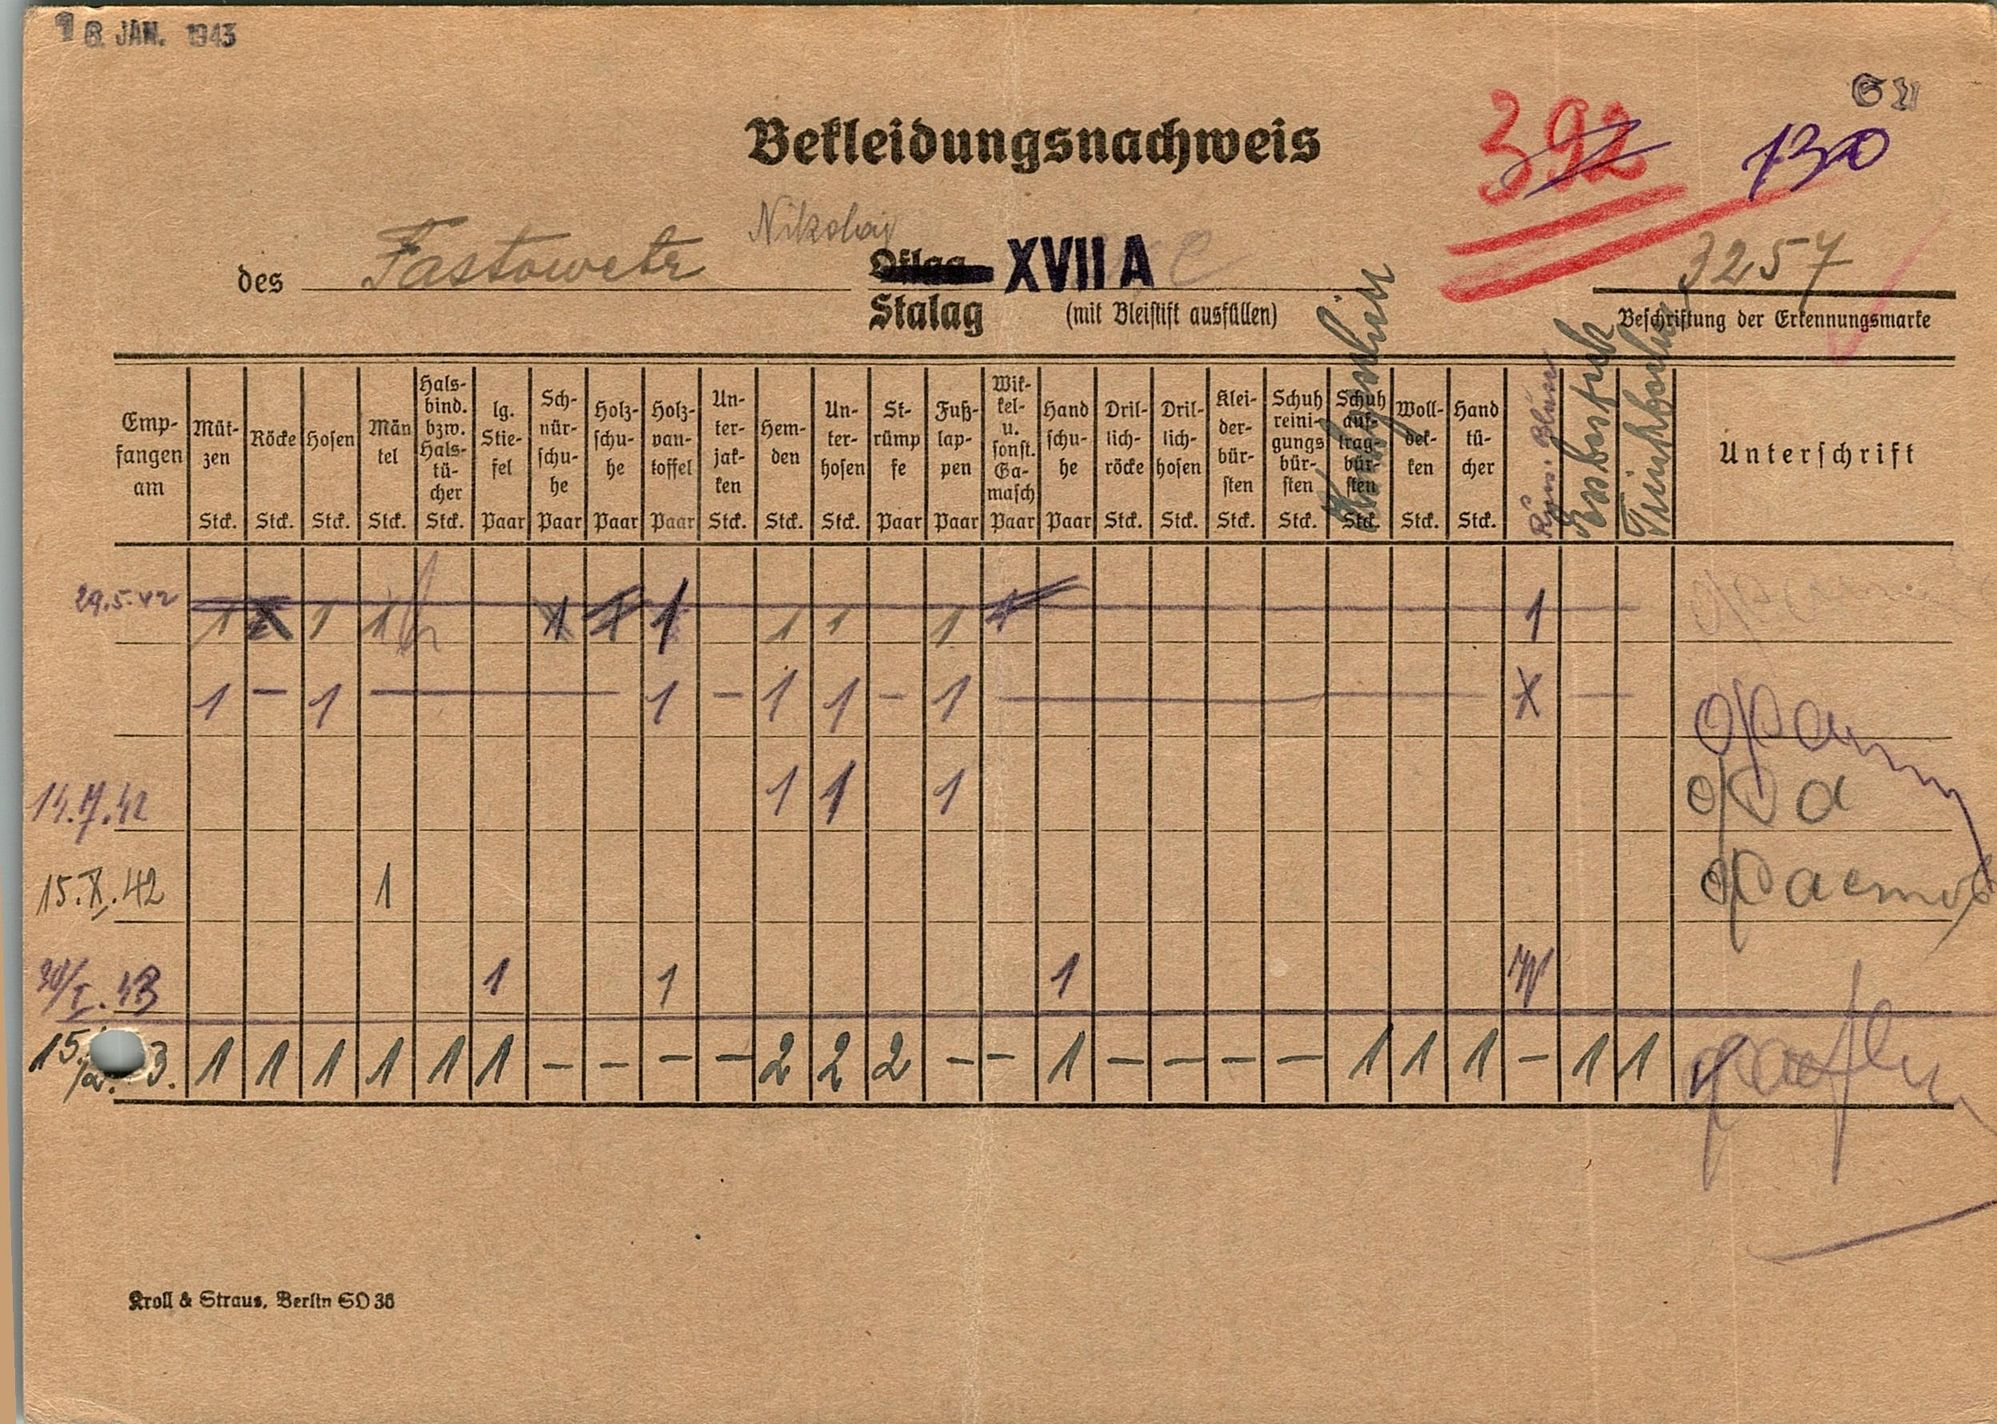 18. JAN. 1943
Bekleidungsnachweis
392 130
Nikolaj
des Fastowetz Oflag XVII A C
Stalag (mit Bleistift ausfüllen)
3257
Beschriftung der Erkennungsmarke
Emp-fangen am
Müt-zen Stck.
Röcke Stck.
Hosen Stck.
Män tel Stck.
Hals-bind. bzw. Hals-tü-cher Stck.
lg. Stie-fel Paar
Sch-nür-schu-he Paar
Holz-schu-he Paar
Holz-pan-toffel Paar
Un-ter-jak-ken Stck.
Hem-den Stck.
Un-ter-hosen Stck.
St-rümp fe Paar
Fuß-lap-pen Paar
Wik-kel- u. sonst. Ga-masch Paar
Hand schu-he Paar
Dril-lich-röcke Stck.
Dril-lich-hosen Stck.
Klei-der-bür-sten Stck.
Schuh reini-gungs bür-sten Stck.
Schuh auf-trag-bür-sten Stck.
Woll-dek-ken Stck.
Hand tü-cher Stck.
Essbesteck
Trinkbecher
Unterschrift
29.5.42 1 1 1 1 1 1 1 1 1 1 1
1 – 1 – 1 – 1 1 – 1 – X –
14.7.42 1 1 1
15.X.42 1
30/I.43 1 1 1
15. 3. 1 1 1 1 1 1 – – – – 2 2 2 – – 1 – – – – 1 1 1 – 1 1
Kroll & Straus, Berlin SO 36